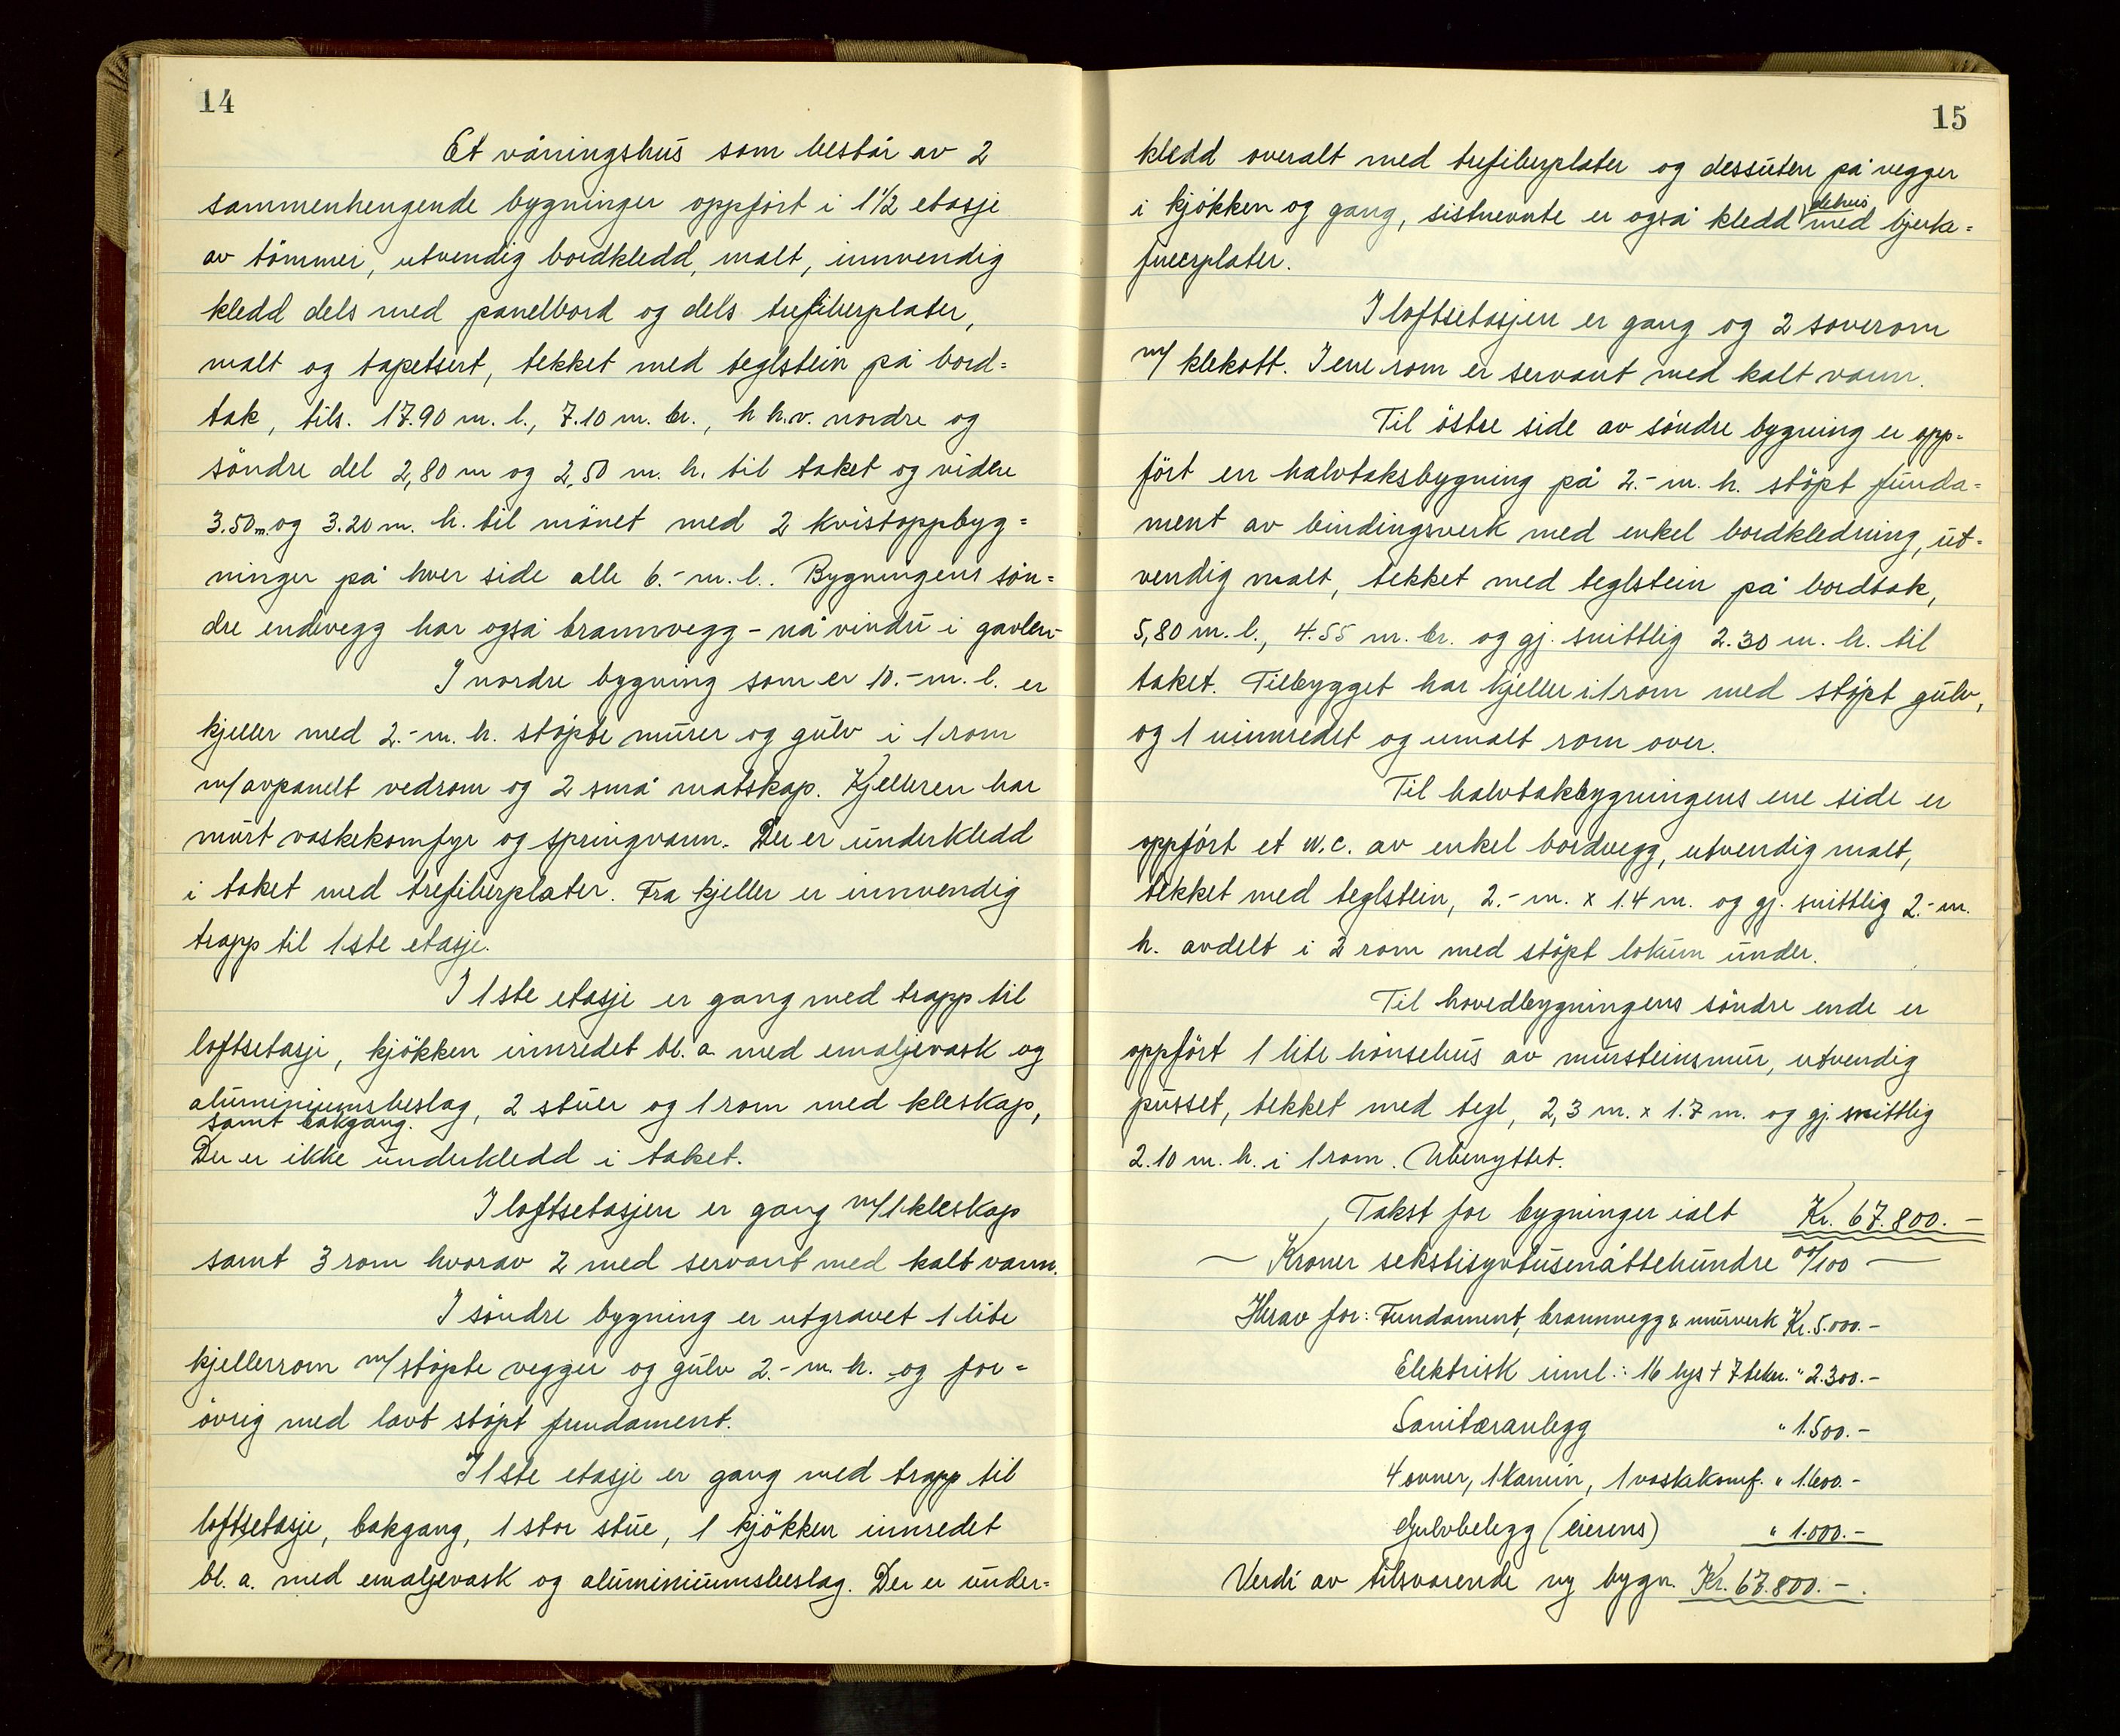 14
Et våningshus som består av 2
sammenhengende bygninger oppført i 1½ etasje
av tømmer, utvendig bordkledd, malt, innvendig
kledd dels med panelbord og dels trefiberplater,
malt og tapetsert, tekket med teglstein på bord=
tak, tils. 17.90 m. l., 7.10 m. br., h h.v. nordre og
søndre del 2,80 m og 2,50 m. h. til taket og videre
3.50 m. og 3.20 m. h. til mønet med 2 kvistoppbyg=
ninger på hver side alle 6.- m. l.. Bygningens søn=
dre endevegg har også brannvegg - nå vindu i gavlen-
I nordre bygning som er 10.- m. l. er
kjeller med 2.- m. h. støpte murer og gulv i 1 rom
m/avpanelt vedrom og 2 små matskap. Kjelleren har
murt vaskekomfyr og springvann. Der er underkledd
i taket med trefiberplater. Fra kjeller er innvendig
trapp til 1ste etasje.
I 1ste etasje er gang med trapp til
loftsetasje, kjøkken innredet bl. a med emaljevask og
aluminiumsbeslag, 2 stuer og 1 rom med kleskap,
samt bakgang.
Der er ikke underkledd i taket.
I loftsetasjen er gang m/1 kleskap
samt 3 rom hvorav 2 med servant med kalt vann.
I søndre bygning er utgravet 1 lite
kjellerrom m/støpte vegger og gulv 2.- m. h. og for=
øvrig med lavt støpt fundament.
I 1ste etasje er gang med trapp til
loftsetasje, bakgang, 1 stor stue, 1 kjøkken innredet
bl. a. med emaljevask og aluminiumsbeslag. Der er under=
15
kledd overalt med trefiberplater og dessuten på vegger
i kjøkken og gang, sistnevnte er også kledd delvis med bjerke=
fineerplater.
I loftsetasjen er gang og 2 soverom
m/ klekott. I ene rom er servant med kalt vann.
Til østre side av søndre bygning er opp=
ført en halvtaksbygning på 2.- m. h. støpt funda=
ment av bindingsverk med enkel bordkledning, ut=
vendig malt, tekket med teglstein på bordtak,
5,80 m. l., 4.55 m. br. og gj. snittlig 2.30 m. h. til
taket. Tilbygget har kjeller i 1 rom med støpt gulv,
og 1 uinnredet og umalt rom over.
Til halvtakbygningens ene side er
oppført et w.c. av enkel bordvegg, utvendig malt,
tekket med teglstein, 2.- m. x 1.4 m. og gj. snittlig 2.- m.
h. avdelt i 2 rom med støpt lokum under.
Til hovedbygningens søndre ende er
oppført 1 lite hønsehus av mursteinsmur, utvendig
pusset, tekket med tegl, 2,3 m. x 1.7 m. og gj. snittlig
2.10 m. h. i 1 rom. Ubenyttet.
Takst for bygninger ialt Kr. 67.800.-
— Kroner sekstisyvtusenåttehundre 00/100 —
Herav for: Fundament, brannvegg & murverk Kr. 5.000.-
Elektrisk innl.: 16 lys + 7 tekn. " 2.300.-
Sanitæranlegg " 1.500.-
4 ovner, 1 kamin, 1 vaskekomf. " 1.600.-
Gulvbelegg (eierens) " 1.000.-
Verdi av tilsvarende ny bygn. Kr. 67.800.-.